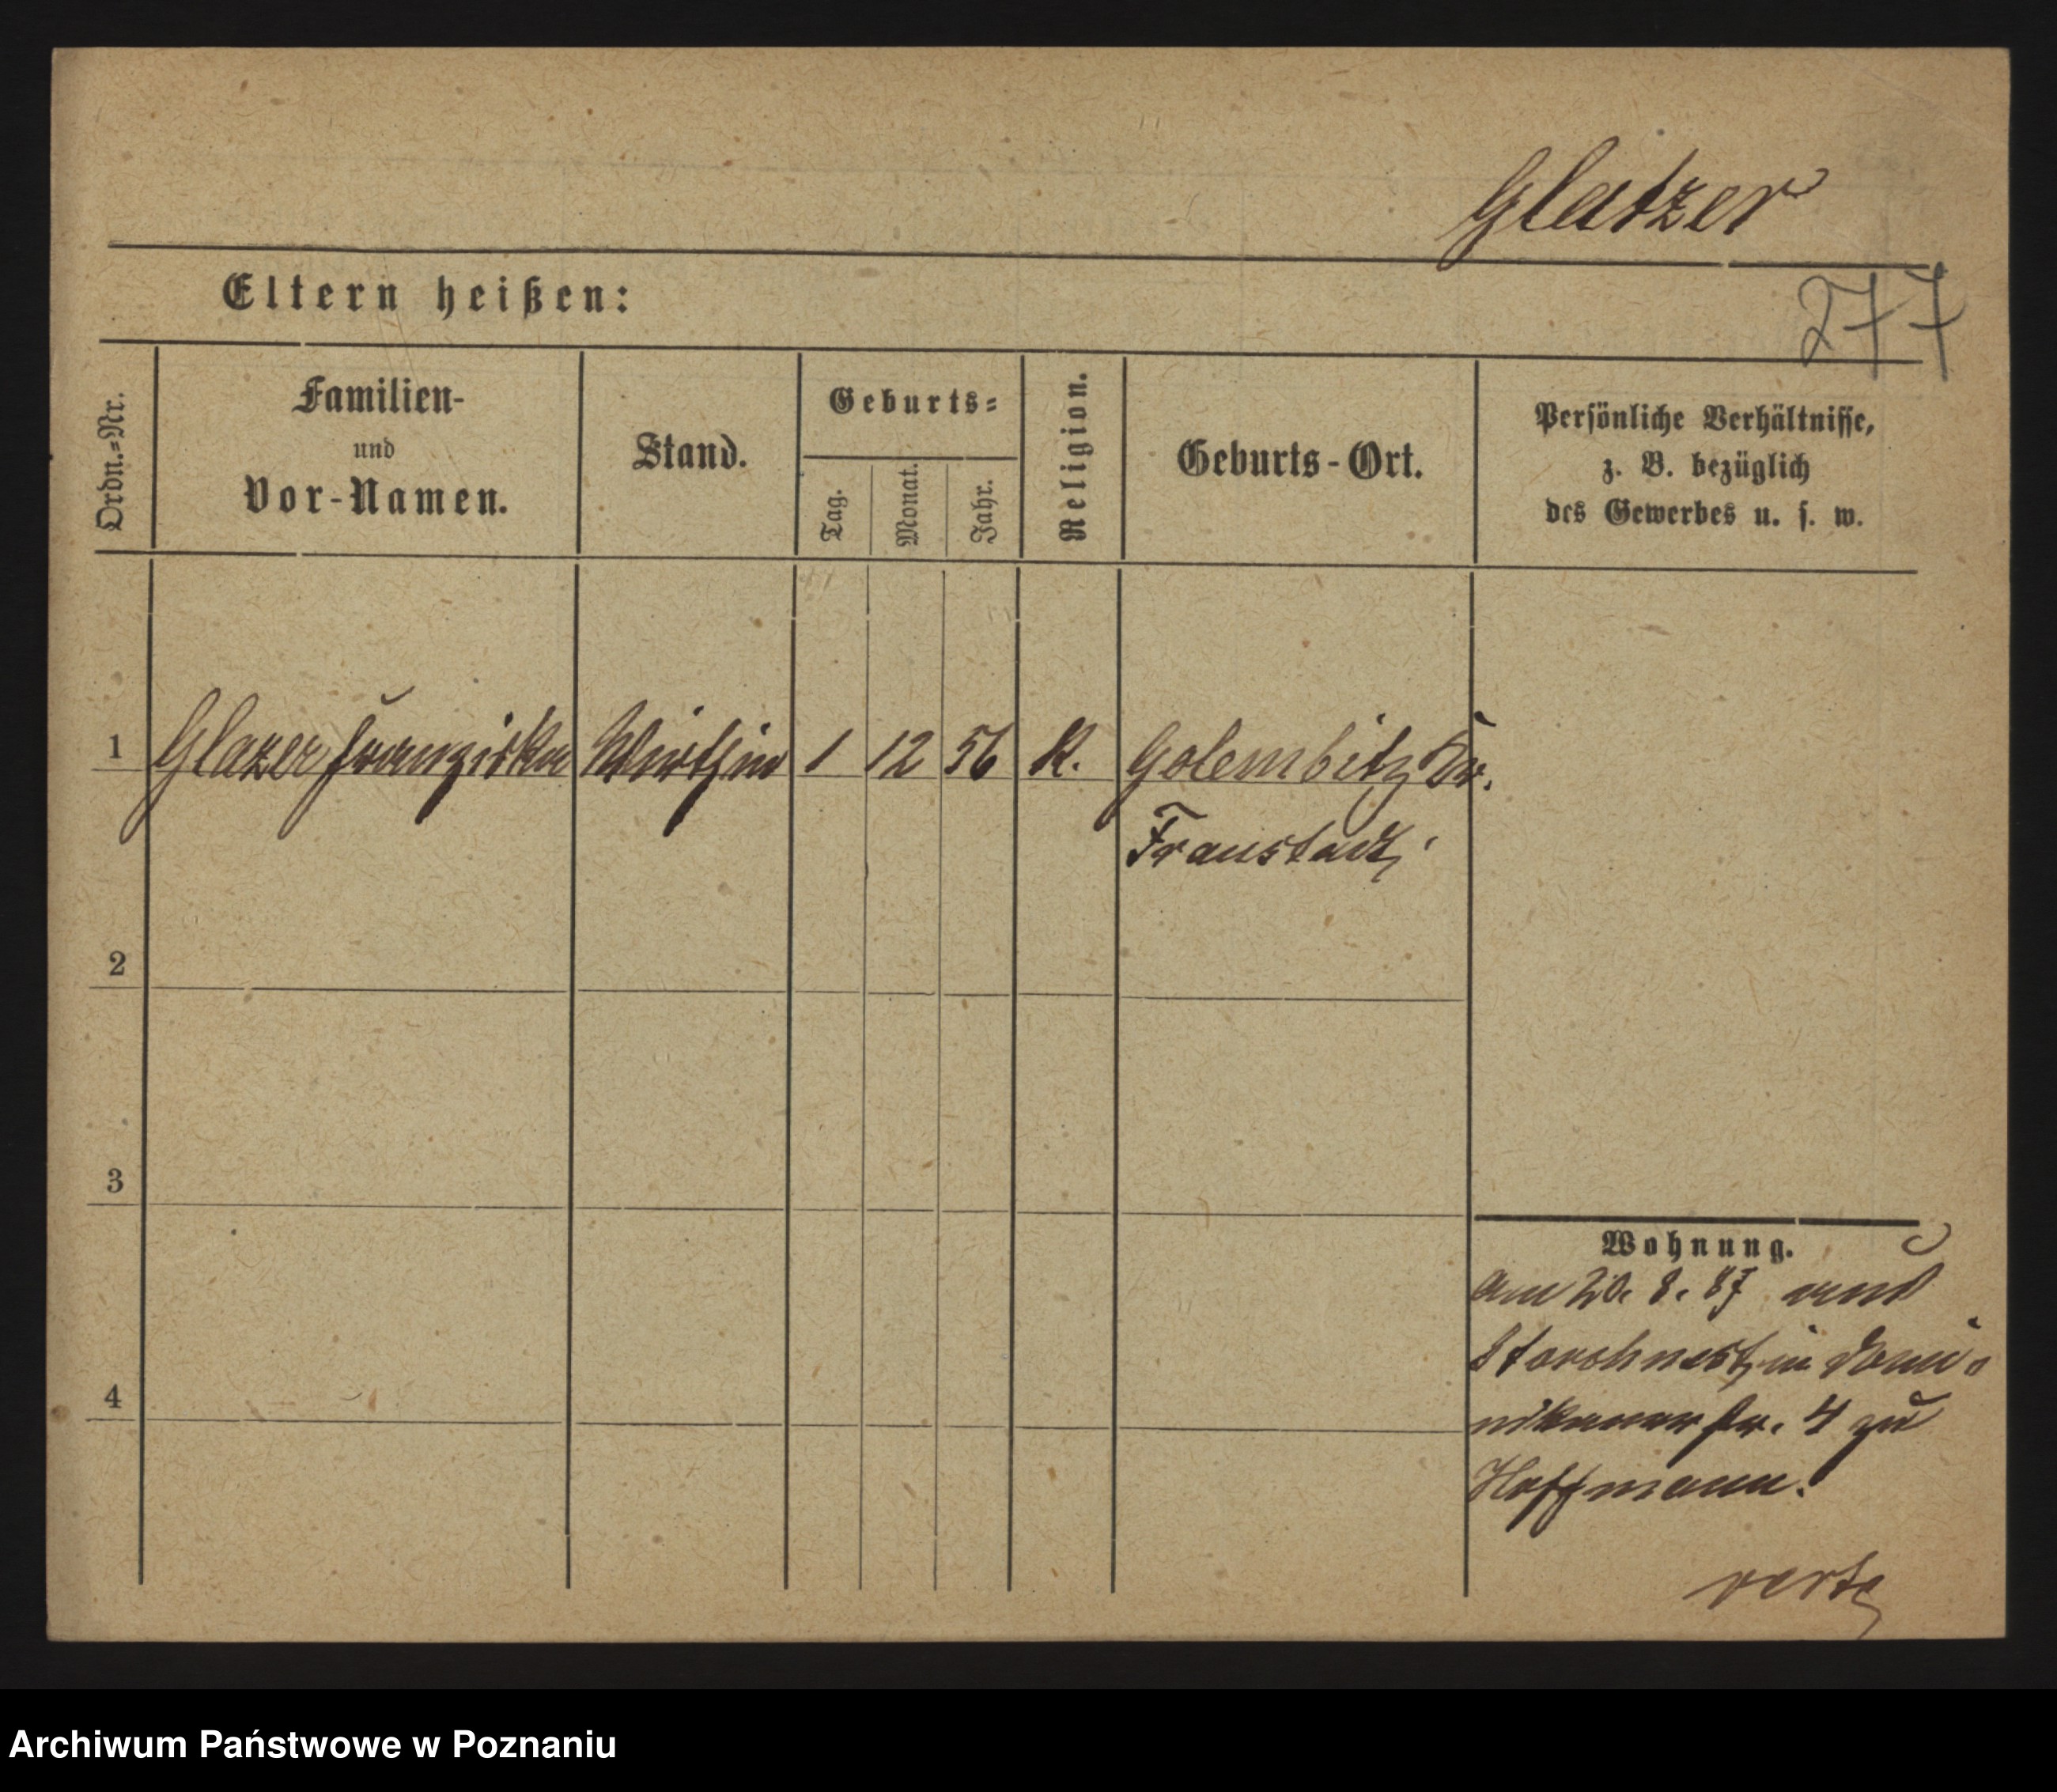 Glatzer
Eltern heißen:
277
Ordn.=Nr.
Familien-
und
Vor-Namen.
Stand.
Geburts=
Tag.
Monat.
Jahr.
Religion.
Geburts-Ort.
Persönliche Verhältnisse,
z. B. bezüglich
des Gewerbes u. s. w.
1 Glazer Franziska Wirthin 1 12 56 K. Golembitz Kr.
Fraustadt
2
3
4
Wohnung.
am 20. 8. 87
Storchnest in Domi-
nikanerstr. 4 zu
Hoffmann.
verte
Archiwum Państwowe w Poznaniu